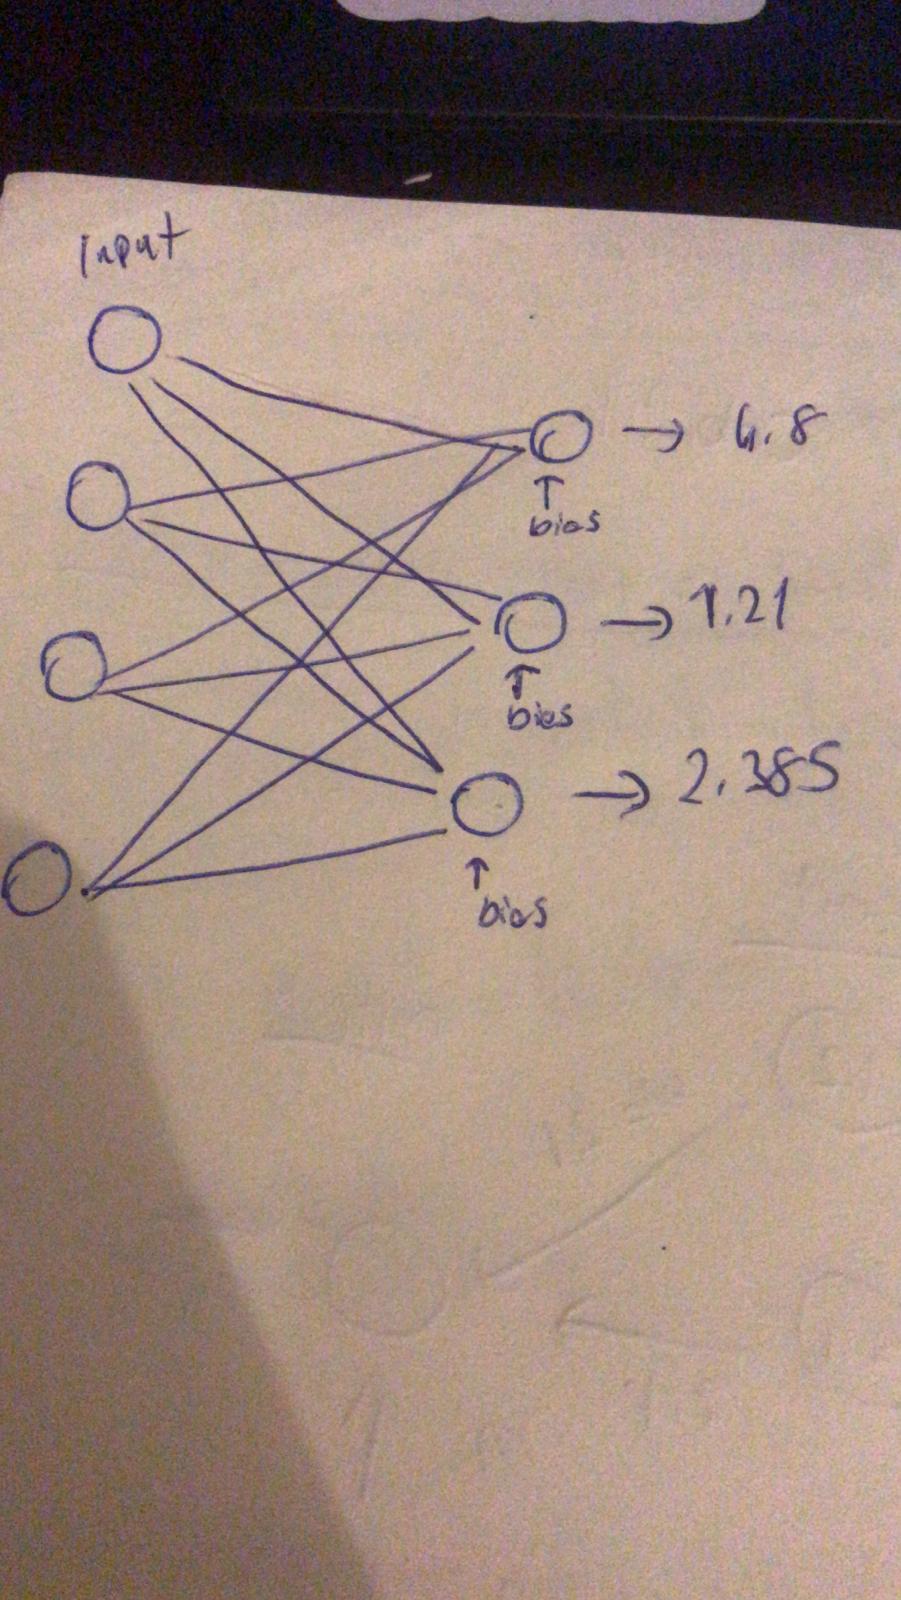 Input
4.8
bias
1.21
bias
2.385
bias